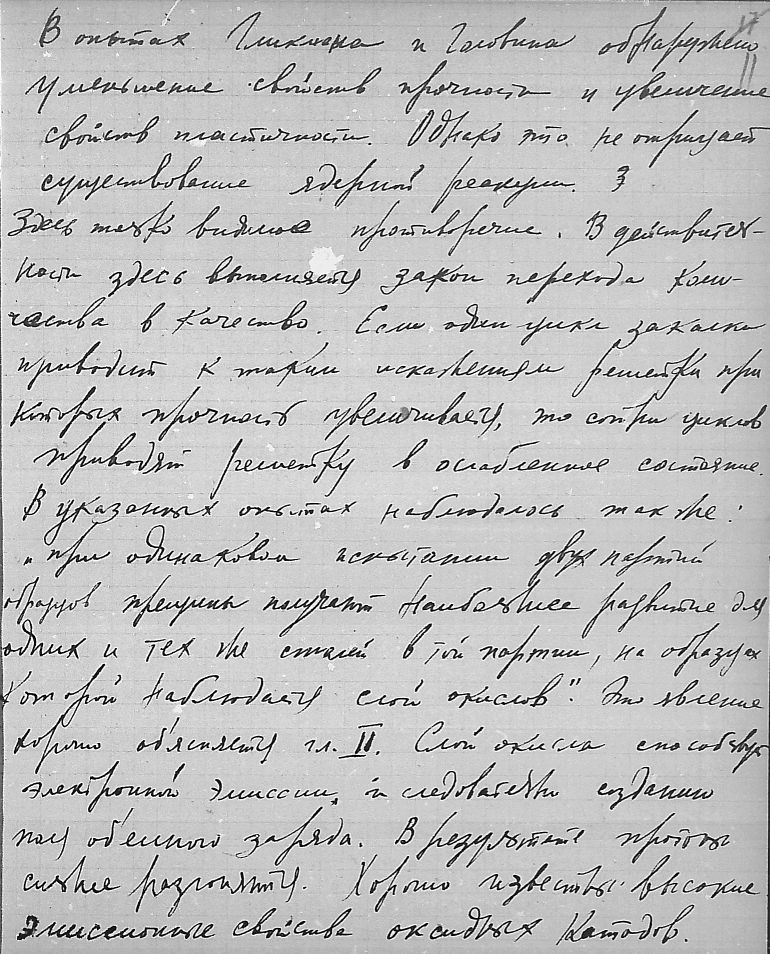 17
В опытах Гликмана и Головина обнаружено
уменьшение свойств прочности и увеличение
свойств пластичности. Однако это не отрицает
существование ядерной реакции. З
Здесь только видимое противоречие. В действитель-
ности здесь выполняется закон перехода коли-
чества в качество. Если один цикл закалки
приводит к таким искажениям решетки при
которых прочность увеличивается, то сотни циклов
приводят решетку в ослабленное состояние.
В указанных опытах наблюдалось также:
„при одинаковом испытании двух партий
образцов трещины получают наибольшее развитие для
одних и тех же сталей в той партии, на образцах
которой наблюдается слой окислов". Это явление
хорошо объясняется гл. II. Слой окисла способствует
электронной эмиссии, и следовательно созданию
поля объемного заряда. В результате протоны
сильнее разгоняются. Хорошо известны высокие
эмиссионные свойства оксидных катодов.